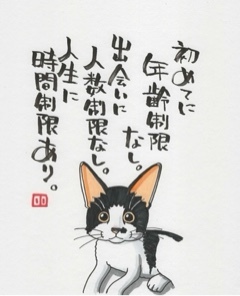 初めてに
年齢制限
なし。
出会いに
人数制限なし。
人生に
時間制限あり。